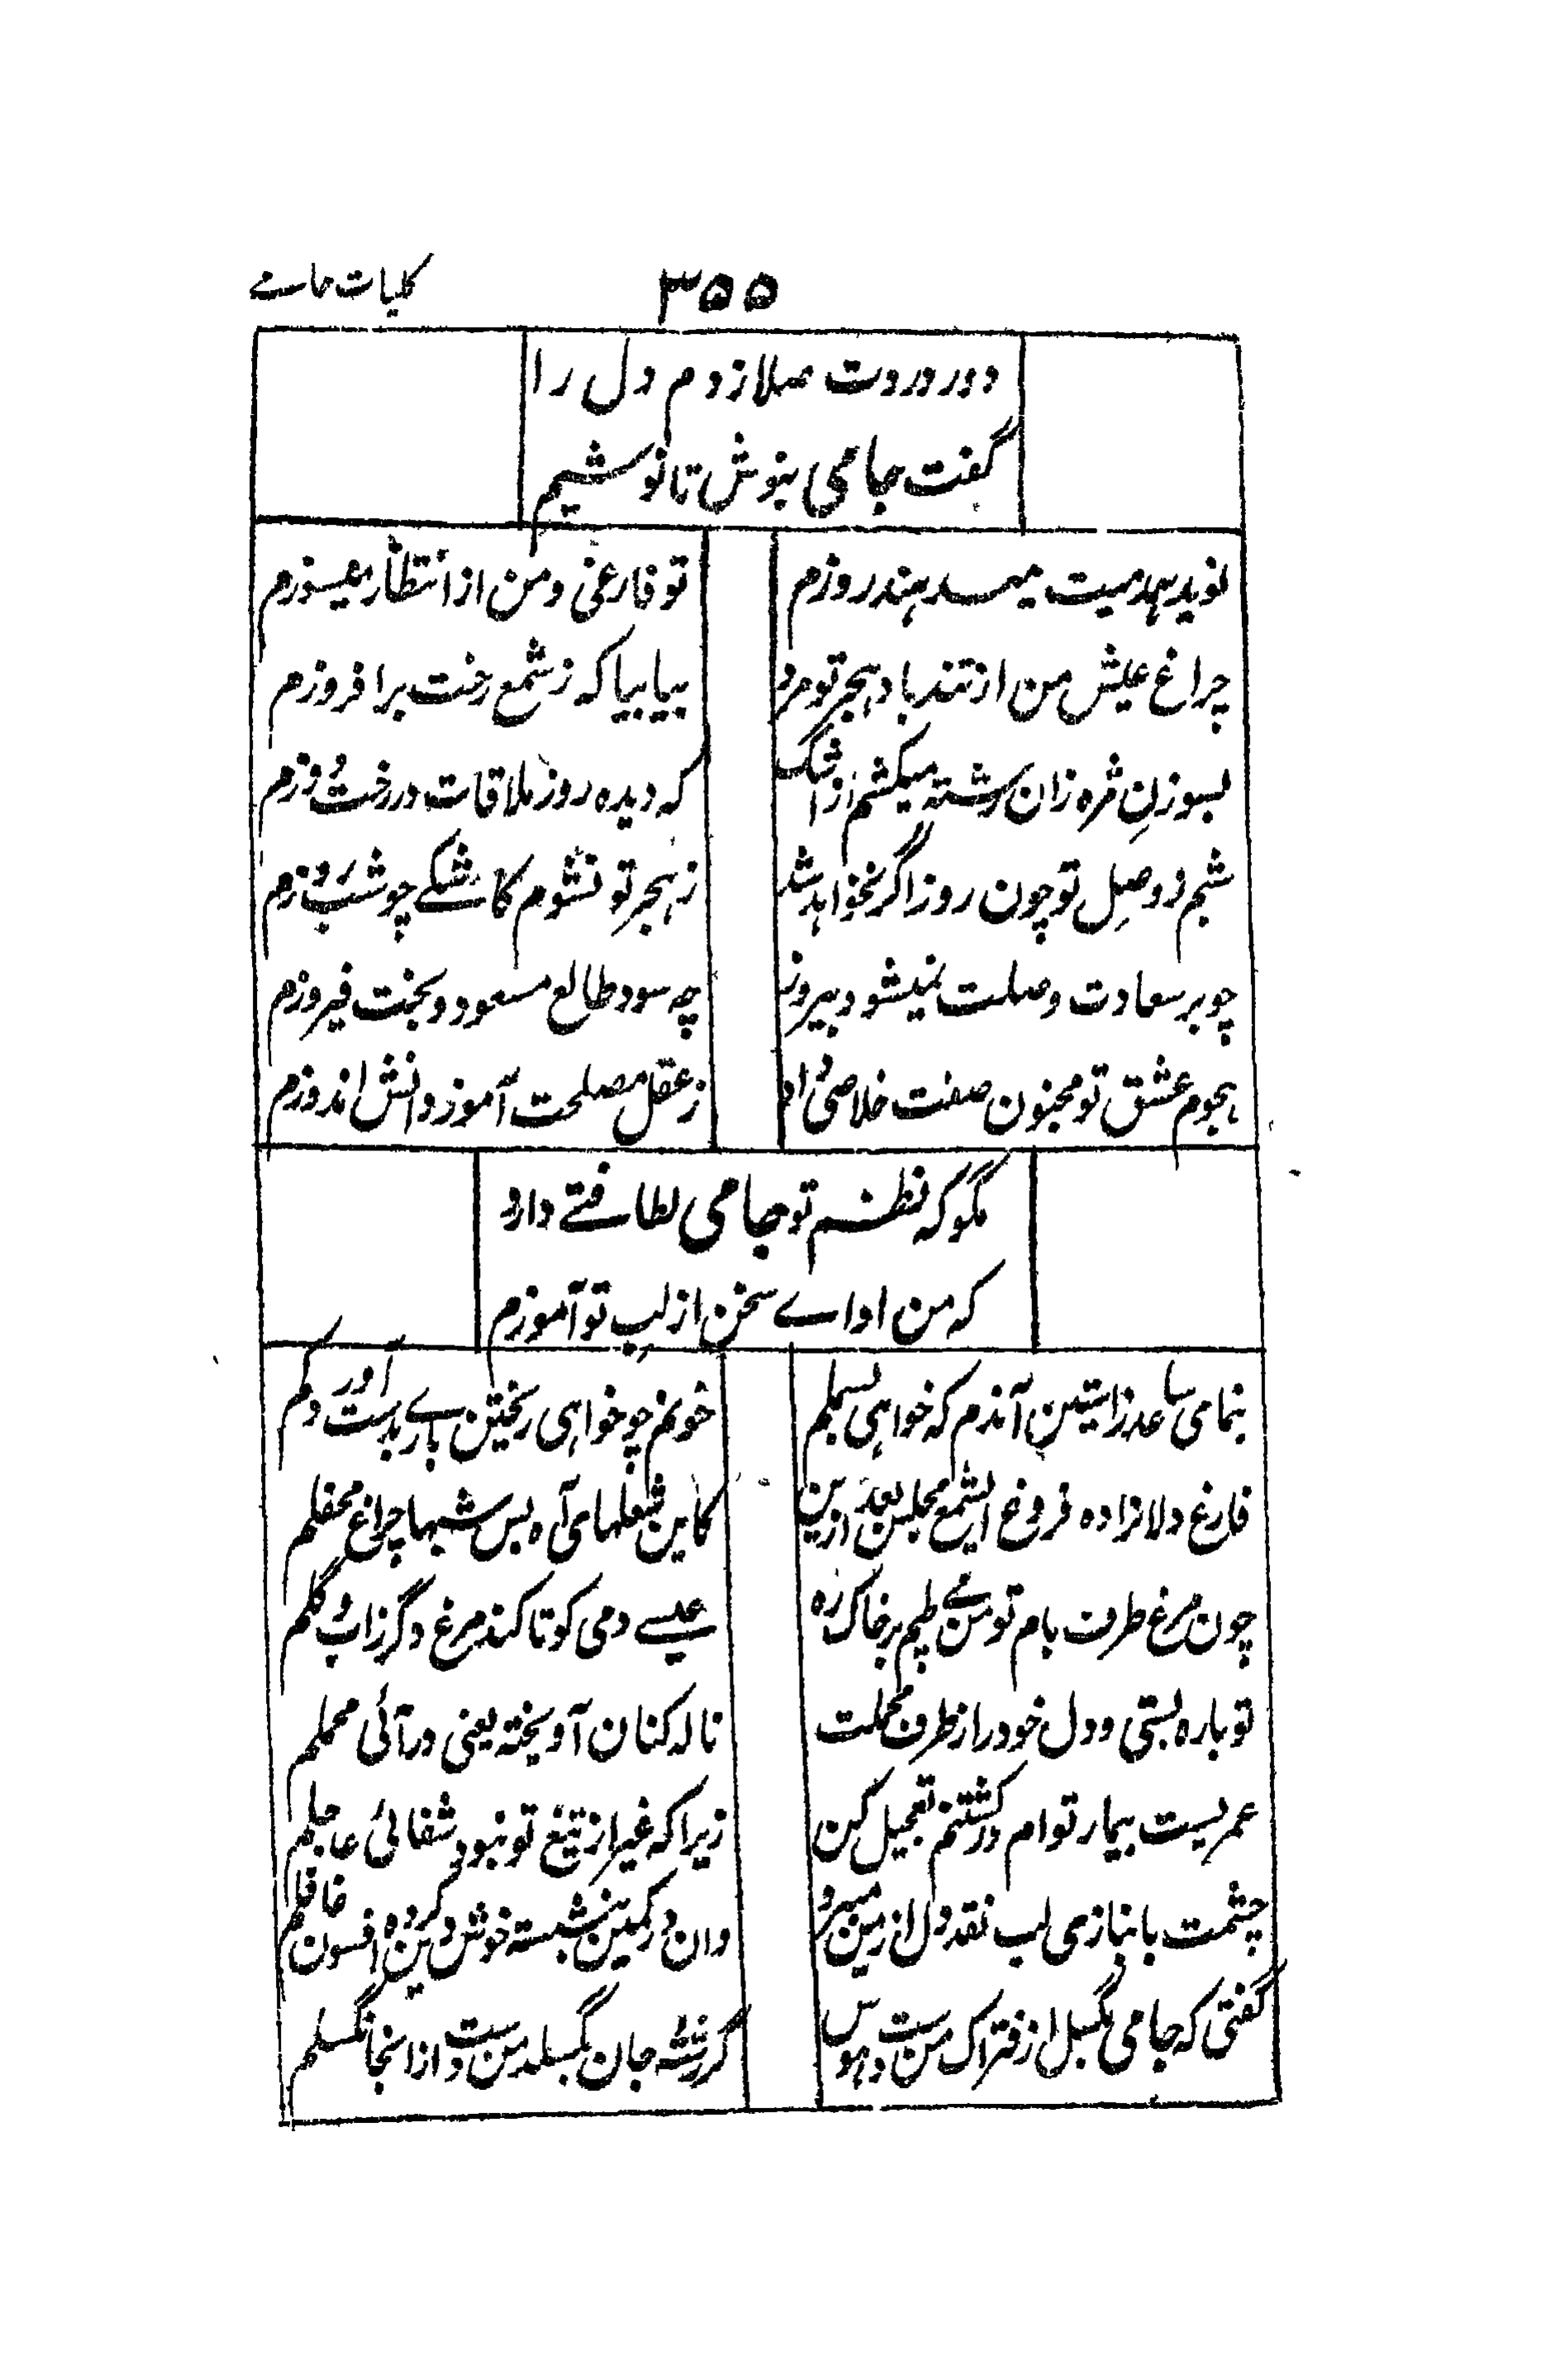 ۳۵۵
کلیات جامے
دور دردت صلا زدم دل را
گفت جامی بنوش تا نوشیم
نوید همدمیت میدهند هر روزم
تو فارغی و من از انتظار میسوزم
چراغ عیش من از تندباد هجر تو مرد
بیا بیا که ز شمع رخت برافروزم
بسوزنِ مژه زان رشته میکشم از اشک
که دیده روز ملاقات در رخت دوزم
شبم ز وصلِ تو چون روز اگر نخواهد شد
ز هجرِ تو نشوم کاشکے چو شب روزم
چو بر سعادت وصلت نمیشود پیروز
چه سود طالع مسعود و بخت فیروزم
هجوم عشق تو مجنون صفت خلاصی داد
ز عقل مصلحت آموز دانش اندوزم
مگو که نظم تو جامی لطافتے دارد
که من اداے سخن از لبِ تو آموزم
بنمای ساعد ز آستین آندم که خواهی بسملم
خونم چو خواهی ریختن بارے بدست آور دلم
فارغ دلا نزاده فروغ ای شمع مجلس بعد ازین
کاین شعلهای آه بس شبها چراغ محفلم
چون مرغ طرف بام تو من مے طپم بر خاک ره
عیسے دمی کو تا کند مرغ دگر ز آب و گلم
تو باره بستی و دل خود را ز طرف محملت
ناله کنان آویخته یعنی درآئی محملم
عمریست بیمار تو ام در کشتنم تعجیل کن
زیرا که غیر از تیغ تو نبود شفائی عاجلم
چشمت بانبازی لب نقد دل از من میبرد
وان در کمین بنشسته خوش وین کرده افسون غافلم
گفتی که جامی بگسل از فتراک من دست هوس
گر رشتهٔ جان بگسلد من دست ازانجا نگسلم